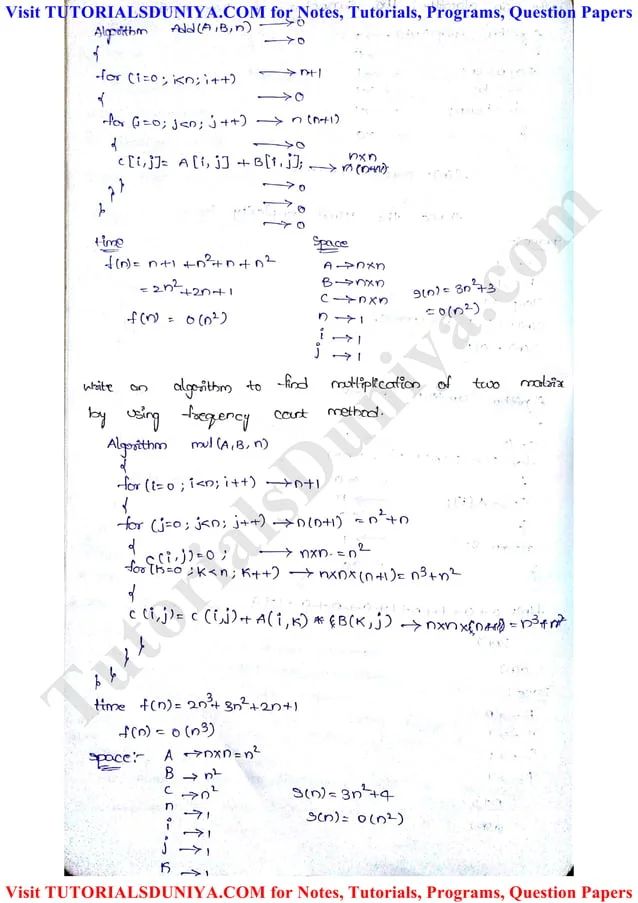 Visit TUTORIALSDUNIYA.COM for Notes, Tutorials, Programs, Question Papers
Algorithm Add(A,B,n) → 0
{ → 0
for (i=0; i<n; i++) → n+1
{ → 0
for (j=0; j<n; j++) → n(n+1)
{ → 0
n×n
C[i,j]= A[i,j] + B[i,j]; →
} } → 0
→ 0
} → 0
time Space
f(n) = n+1 +n²+n+n² A → n×n
B → n×n
= 2n²+2n+1 C → n×n s(n) = 3n²+3
f(n) = O(n²) n → 1 = O(n²)
i → 1
j → 1
write an algorithm to find multiplication of two matrix
by using freqency count method.
Algorithm mul(A,B,n)
{
for (i=0; i<n; i++) → n+1
{
for (j=0; j<n; j++) → n(n+1) = n²+n
{
C(i,j)=0; → n×n = n²
for(K=0; K<n; K++) → n×n×(n+1) = n³+n²
{
C(i,j) = C(i,j)+A(i,K) * B(K,j) → n×n×(n+1) = n³+n²
} } } }
time f(n) = 2n³+3n²+2n+1
f(n) = O(n³)
Space:- A → n×n = n²
B → n²
C → n² s(n) = 3n²+4
n → 1 s(n) = O(n²)
i → 1
j → 1
K → 1
TutorialsDuniya.com
Visit TUTORIALSDUNIYA.COM for Notes, Tutorials, Programs, Question Papers